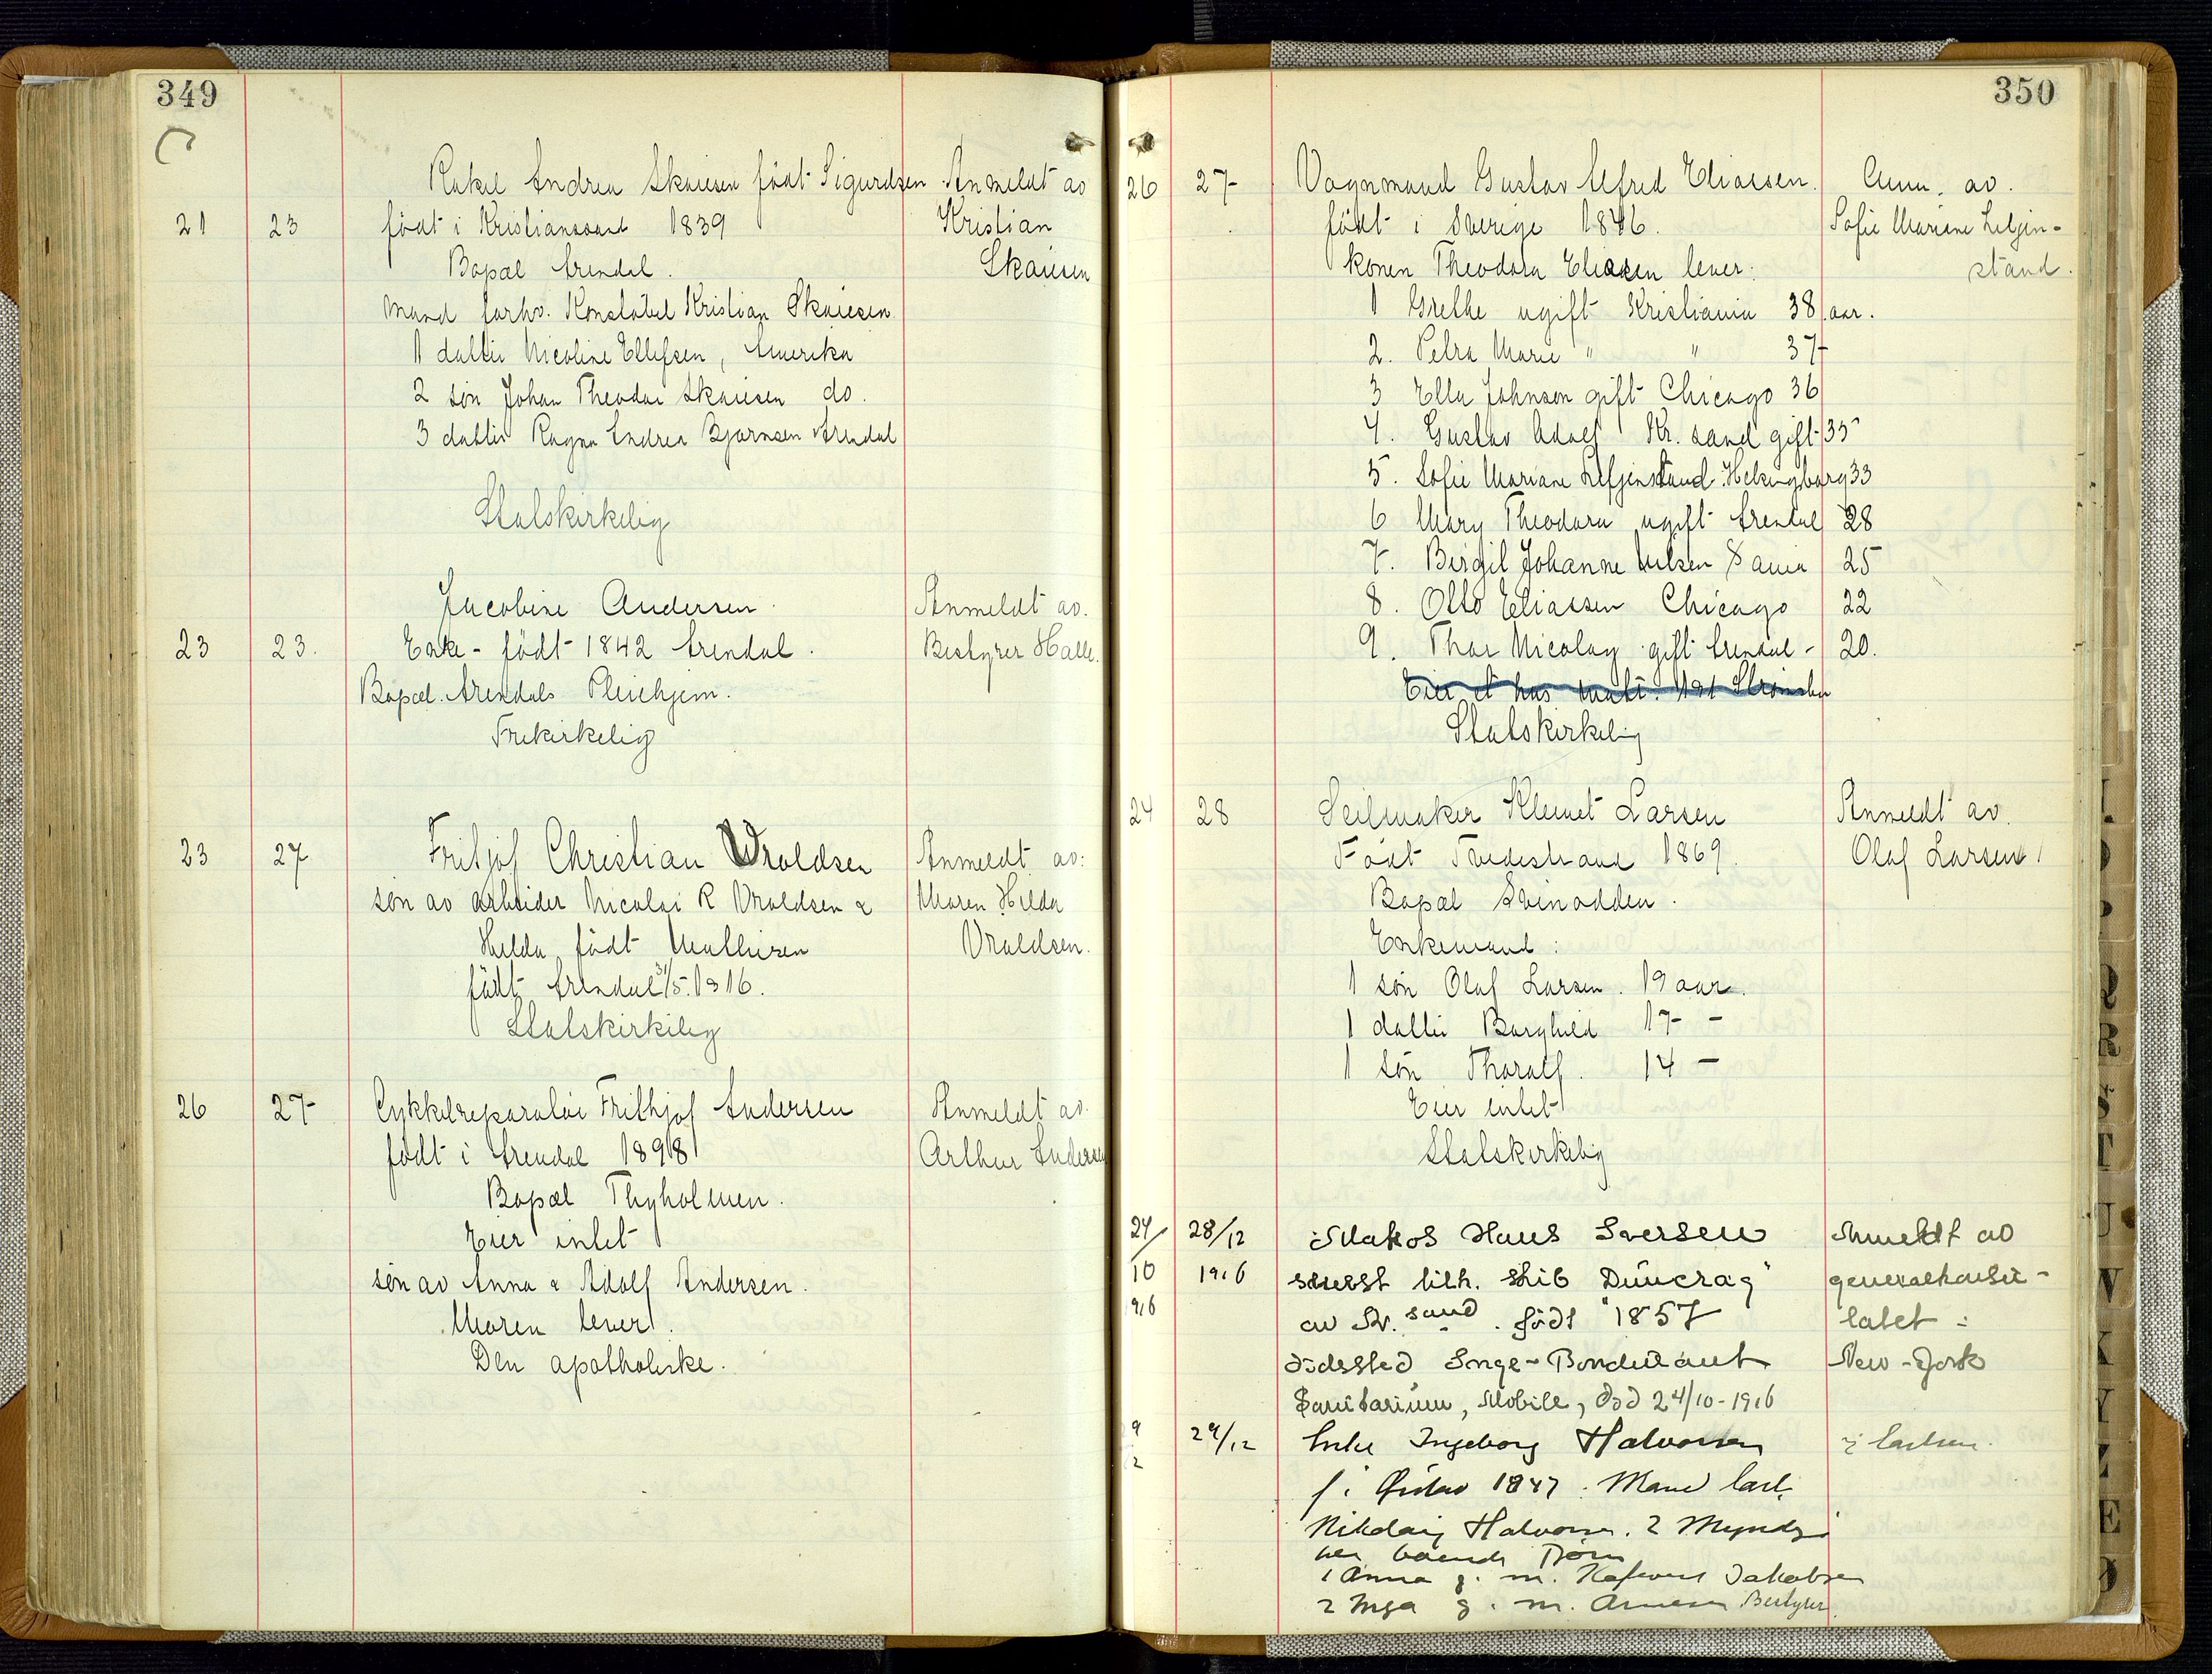 349
Rakel Andrea Skaiesen født Sigurdsen Anmeldt av
21 23 født i Kristianssand 1839 Kristian
Bopæl Arendal. Skaiesen
Mand forhv. Konstabel Kristian Skaiesen
1 datter Nicoline Ellefsen, Amerika
2 søn Johan Theodor Skaiesen do.
3 datter Ragna Andrea Bjørnsen Arendal
Statskirkelig
Jacobine Andersen Anmeldt av.
23 23. Enke - født 1842 Arendal. Bestyrer Halle.
Bopæl Arendals Pleiehjem.
Frikirkelig
23 27 Fritjof Christian Vroldsen Anmeldt av:
søn av arbeider Nicolai R Vroldsen & Maren Hilda
Hilda født Mathisen Vroldsen.
født Arendal 31/5. 1916.
Statskirkelig
26 27 Cykkelreparatør Frithjof Andersen Anmeldt av
født i Arendal 1898 Arthur Andersen
Bopæl Thyholmen.
Eier intet
søn av Anna & Adolf Andersen.
Moren lever.
Den apotholiske.
350
26 27 Vognmand Gustav Alfred Eliassen. Anm. av.
født i Sverige 1846. Sofie Mariane Liljin-
Konen Theodora Eliasen lever: stand.
1 Grethe ugift Kristiania 38 aar.
2. Petra Marie " " 37
3 Ella Johnson gift Chicago 36
4. Gustav Adolf Kr. sand gift 35
5. Sofie Mariane Liljinstand Helsingborg 33
6 Mary Theodora ugift Arendal 28
7. Birgit Johanne Nilsen 25
8. Otto Eliassen Chicago 22
9. Thor Nicolay gift Arendal - 20.
Eier et hus matr. 191 Strømsbu
Statskirkelig
24 28 Seilmaker Klemet Larsen Anmeldt av.
Født Tvedestrand 1869. Olaf Larsen
Bopæl Svinodden.
Enkemand:
1 søn Olaf Larsen. 19 aar.
1 datter Borghild 17 -
1 søn Thoralf. 14 -
Eier intet
Statskirkelig
24/ 28/12 Matros Hans Iversen Anmeldt av
10 1916 senest tilh. skib "Duncrag" generalkonsu-
916 av Kr. sand. født 1857 latet i
dødssted Inge-Bondurant New-York
Sanitarium, Mobile, død 24/10-1916
9 29/12 Enke Ingeborg Halvorsen
2 f. i 1847. Mand
Nikolaig Halvorsen. 2 Myndige
her boende Børn
1 Anna g. m. Jakobsen
2 Inga g. m. Arnesen Bestyrer.